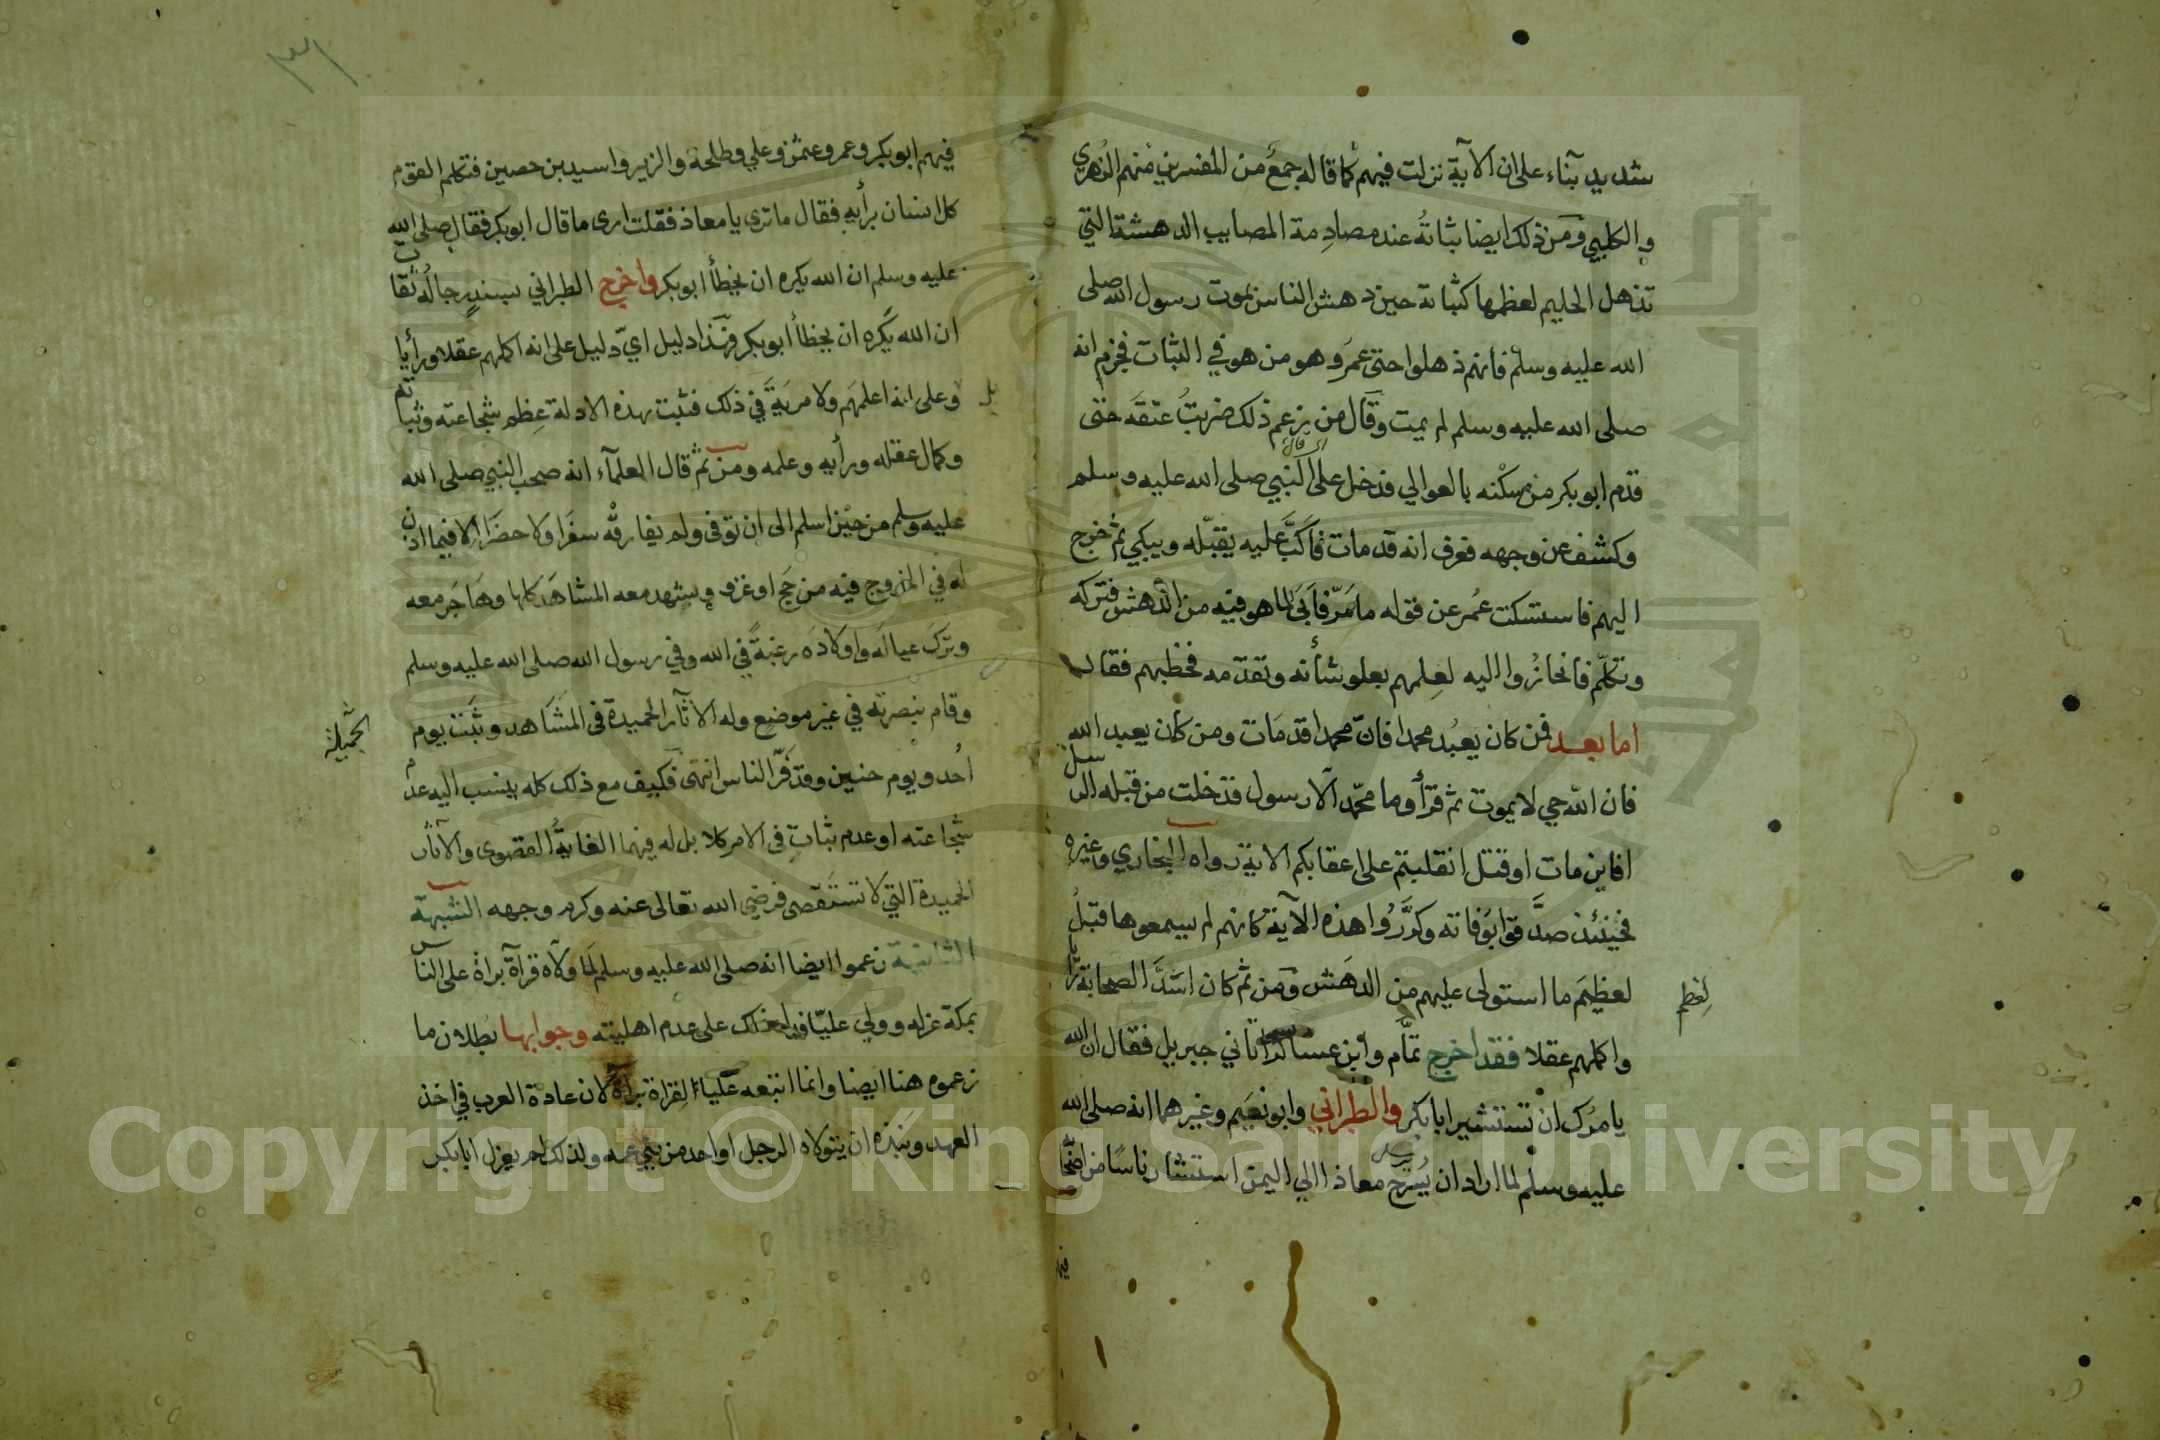 شديد بناء على ان الآية نزلت فيهم كما قاله جمع من المفسرين منهم الزهري
والكلبي ومن ذلك ايضا ثباته عند مصادمة المصايب الدهشة التي
تذهل الحليم لعظمها كثباته حين دهش الناس بموت رسول الله صلى
الله عليه وسلم فانهم ذهلوا حتى عمر وهو من هو في الثبات فجزم انه
صلى الله عليه وسلم لم يمت وقال من زعم ذلك ضربت عنقه حتى
قدم ابو بكر من مسكنه بالعوالي فدخل على النبي صلى الله عليه وسلم
وكشف عن وجهه فعرف انه قد مات فأكب عليه يقبله ويبكي ثم خرج
اليهم فاستسكت عمر عن قوله ما مر فابى لما هو فيه من الدهش فتركه
وتكلم فانحازوا اليه لعلمهم بعلو شأنه وتقدمه فخطبهم فقال
اما بعد فمن كان يعبد محمدا فان محمدا قد مات ومن كان يعبد الله
فان الله حي لا يموت ثم قرأ وما محمد الا رسول قد خلت من قبله الرسل
افاين مات او قتل انقلبتم على اعقابكم الاية رواه البخاري وغيره
فحينئذ صدقوا بوفاته وكرروا هذه الآية كانهم لم يسمعوها قبل
لعظيم ما استولى عليهم من الدهش ومن ثم كان اسد الصحابة رأيا
لعظم
واكملهم عقلا فقد اخرج تمام وابن عساكر اتاني جبريل فقال ان الله
يامرك ان تستشير ابا بكر والطبراني وابو نعيم وغيرهما انه صلى الله
عليه وسلم لما اراد ان يسرح معاذا الي اليمن استشار ناسا من اصحابه
فيهم
٣٦
فيهم ابو بكر وعمر وعثمن وعلي وطلحة والزبير واسيد بن حصين فتكلم القوم
كل انسان برأيه فقال ما ترى يا معاذ فقلت ارى ما قال ابو بكر فقال صلى الله
عليه وسلم ان الله يكره ان يخطأ ابو بكر واخرج الطبراني بسند رجاله ثقات
ان الله يكره ان يخطأ ابو بكر فهذا دليل اي دليل على انه اكملهم عقلا ورأيا
وعلى انه اعلمهم ولا مرية في ذلك فثبت بهذه الادلة عظم شجاعته وثباته
وكمال عقله ورأيه وعلمه ومن ثم قال العلماء انه صحب النبي صلى الله
عليه وسلم من حين اسلم الى ان توفى ولم يفارقه سفرا ولا حضرا الا فيما اذن
له في الخروج فيه من حج او غزو وشهد معه المشاهد كلها وهاجر معه
وترك عياله واولاده رغبة في الله وفي رسول الله صلى الله عليه وسلم
وقام بنصرته في غير موضع وله الآثار الحميدة في المشاهد وثبت يوم
الجميلة
احد ويوم حنين وقد فر الناس انتهى فكيف مع ذلك كله ينسب اليه عدم
شجاعته او عدم ثبات في الامر كلا بل له فيهما الغاية القصوى والآثار
الحميدة التي لا تستقصى فرضي الله تعالى عنه وكرم وجهه الشبهة
الثانية زعموا ايضا انه صلى الله عليه وسلم لما ولاه قراة براة على الناس
بمكة عزله وولي عليا فدل ذلك على عدم اهليته وجوابها بطلان ما
زعموه هنا ايضا وانما اتبعه عليا لقراة براة لان عادة العرب في اخذ
العهد ونبذه ان يتولاه الرجل او احد من بني عمه ولذلك لم يعزل ابا بكر
Copyright © King Saud University